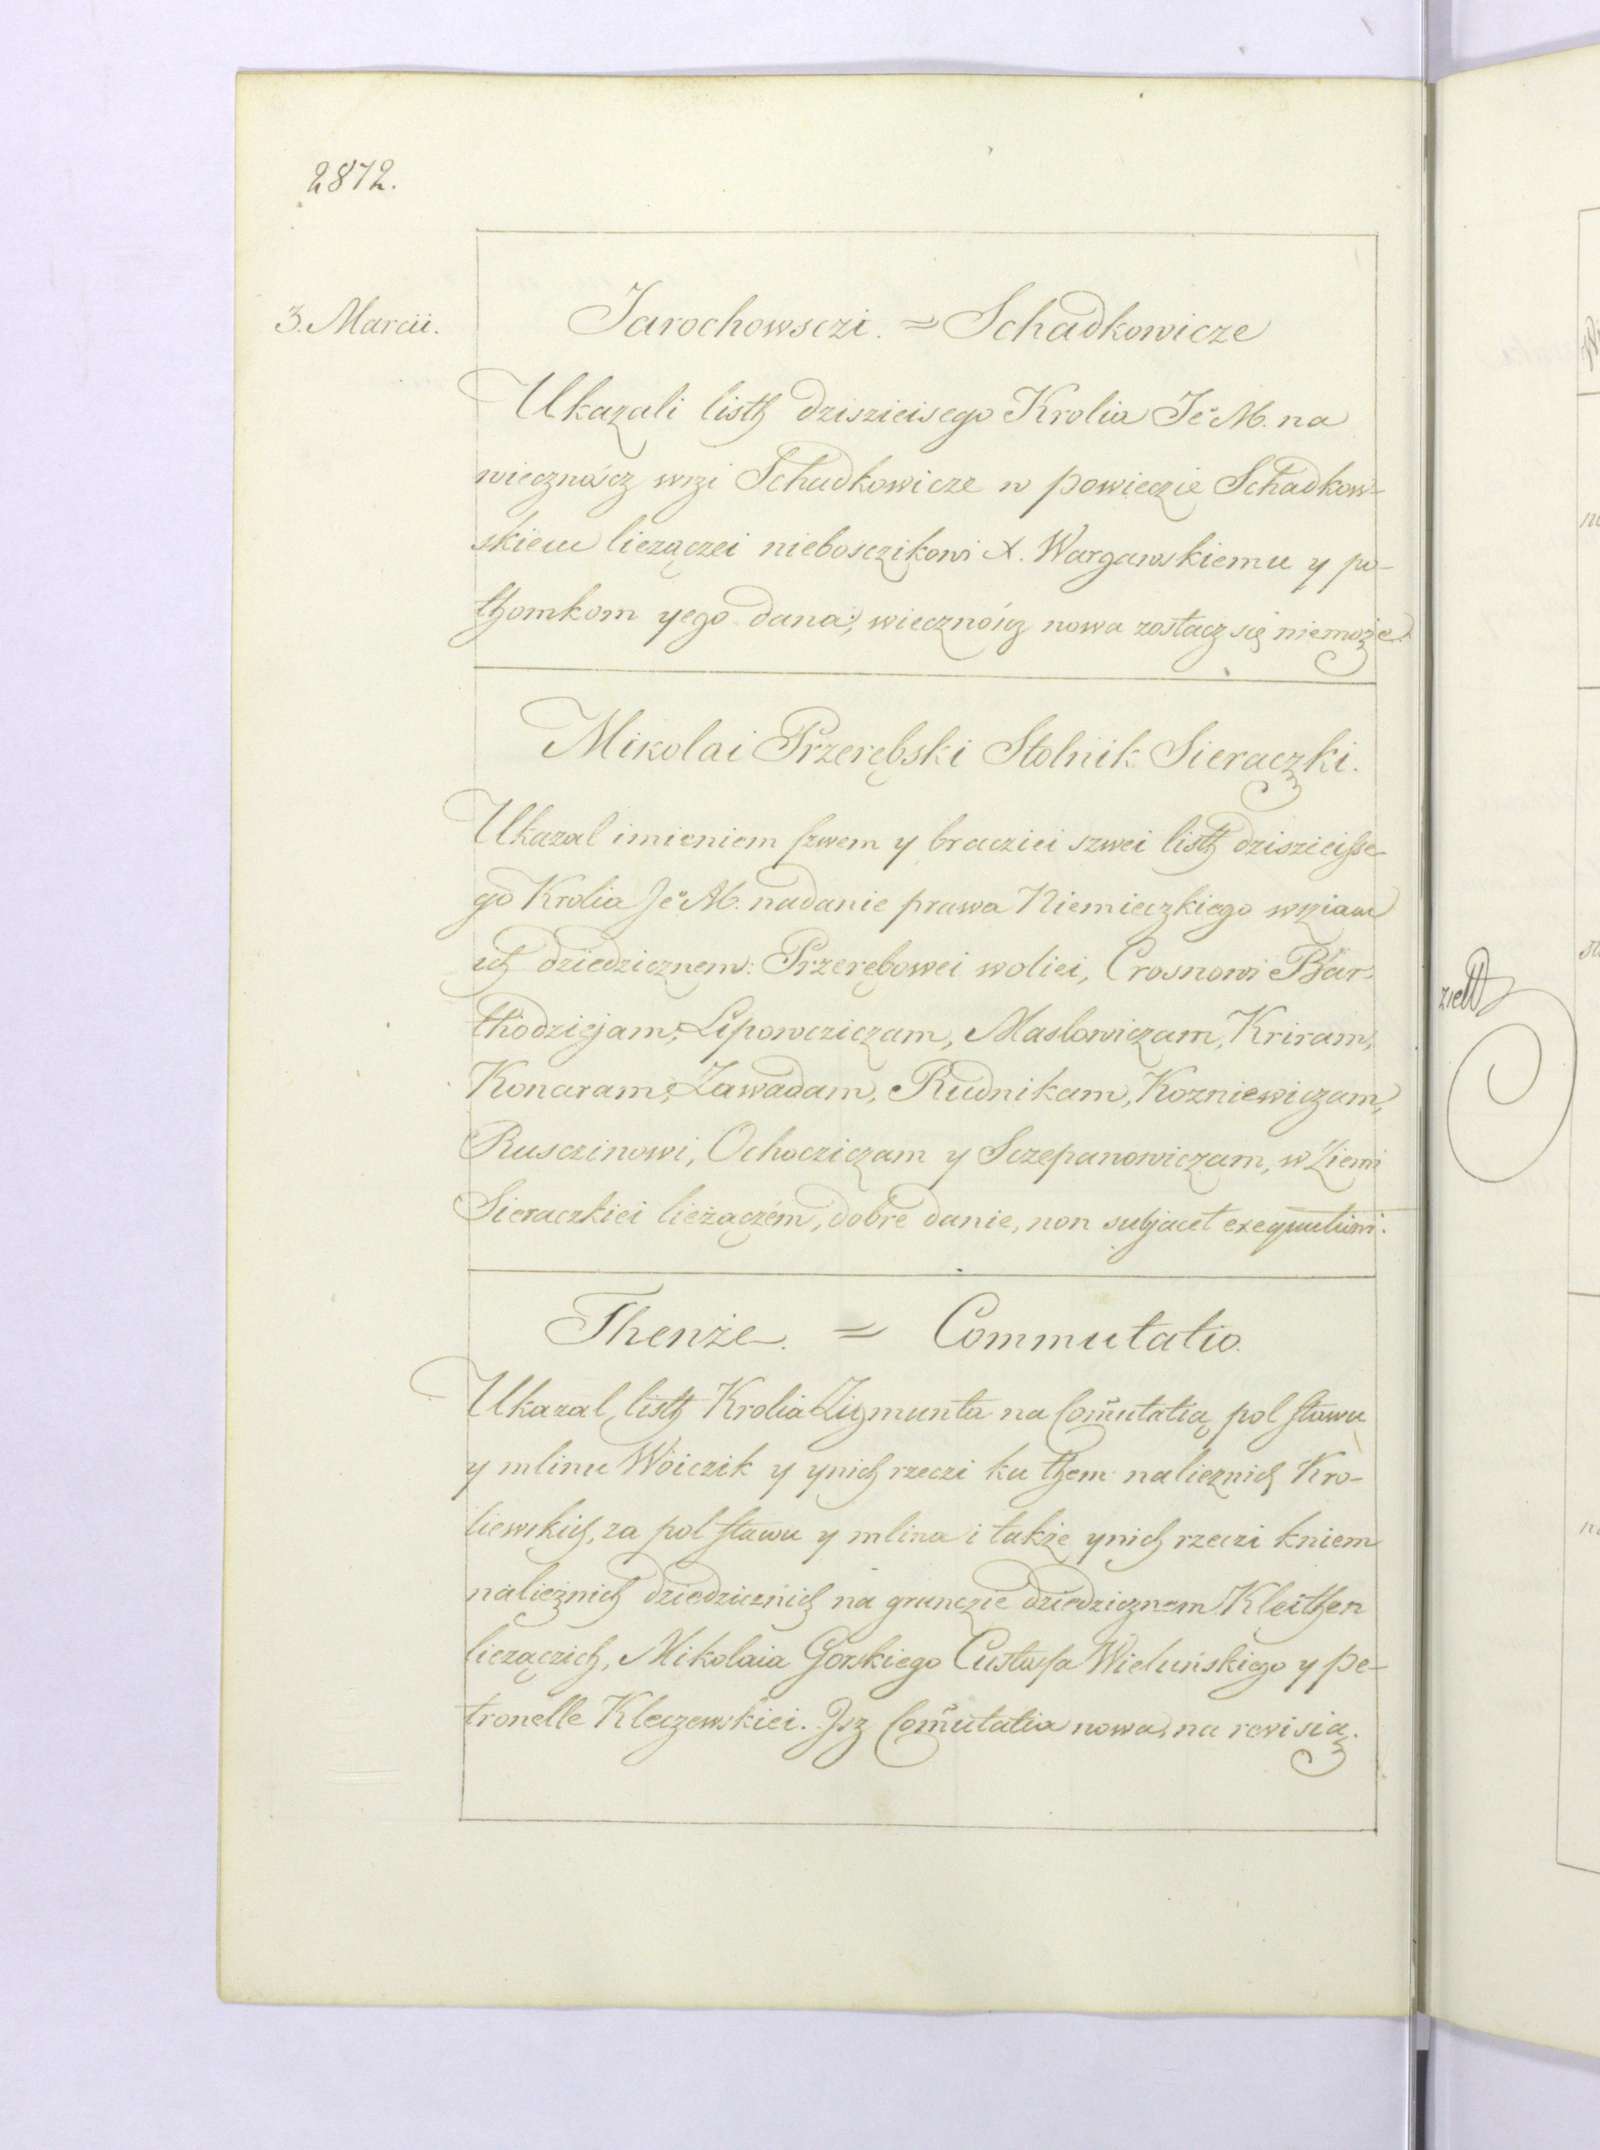 2872.
3. Marcii.
Jarochowsczi. = Schadkowicze
Ukazali listh dziszieisego Krolia Je° M. na
wiecznoścz wszi Schadkowicze w powieczie Schadkow-
skiem liezączei nieboszczikowi X. Wargawskiemu y po-
thomkom yego dana, wiecznoścz nowa zostacz się niemoże.
Mikolai Przerębski Stolnik Sieraczki.
Ukazal imieniem szwem y bracziei szwei listh dziszieisse-
go Krolia Je° M. nadanie prawa Niemieczkiego wsziam
ich dziedzicznem: Przerębowei woliei, Crosnowi Bar-
thodziejam, Lipowcziczam, Maslowiczam, Kriram,
Konaram, Zawadam, Rudnikam, Kozniewiczam,
Rusczinowi, Ochocziczam y Sczepanowiczam, w Ziemi
Sieraczkiei lieżączém, dobre danie, non subjacet exequutioni.
Thenże. = Commutatio.
Ukazal listh Krolia Zigmunta na Comutatią pol stawu
y mlinu Woiczik y ynich rzeczi ku them nalieznich Kro-
liewskich, za pol stawu y mlina i także ynich rzeczi kniem
nalieżnich dziedzicznich na grunczie dziedzicznem Kleithen
liezączich, Mikolaia Gorskiego Custosa Wieluńskiego y pe-
tronelle Kleczewskiei. Isz Comutatia nowa, na rewisią.